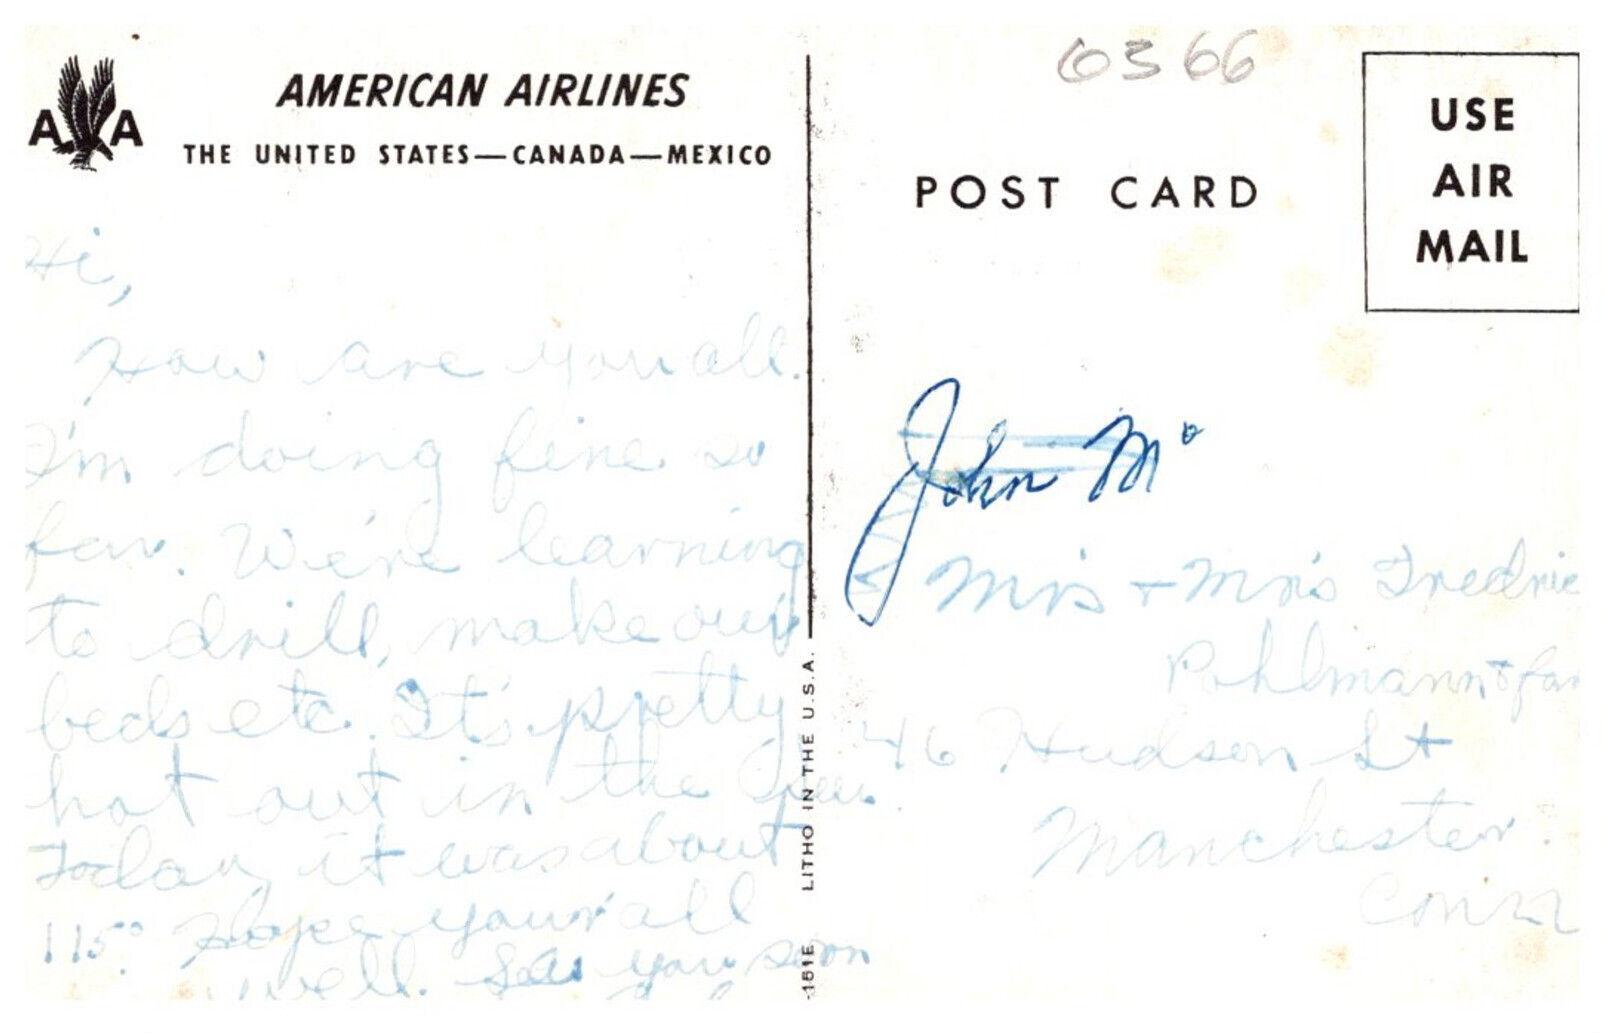 A A
AMERICAN AIRLINES
THE UNITED STATES—CANADA—MEXICO
Hi,
How are you all.
I'm doing fine so
far. We're learning
to drill, make our
beds etc. It's pretty
hot out in the
Today it was about
115° Hope your all
well. See you soon
6366
POST CARD
USE
AIR
MAIL
John Mc
Mr's + Mrs Fredric
Pohlmann + fam
46 Hudson St
Manchester
Conn
LITHO IN THE U.S.A.
-151E